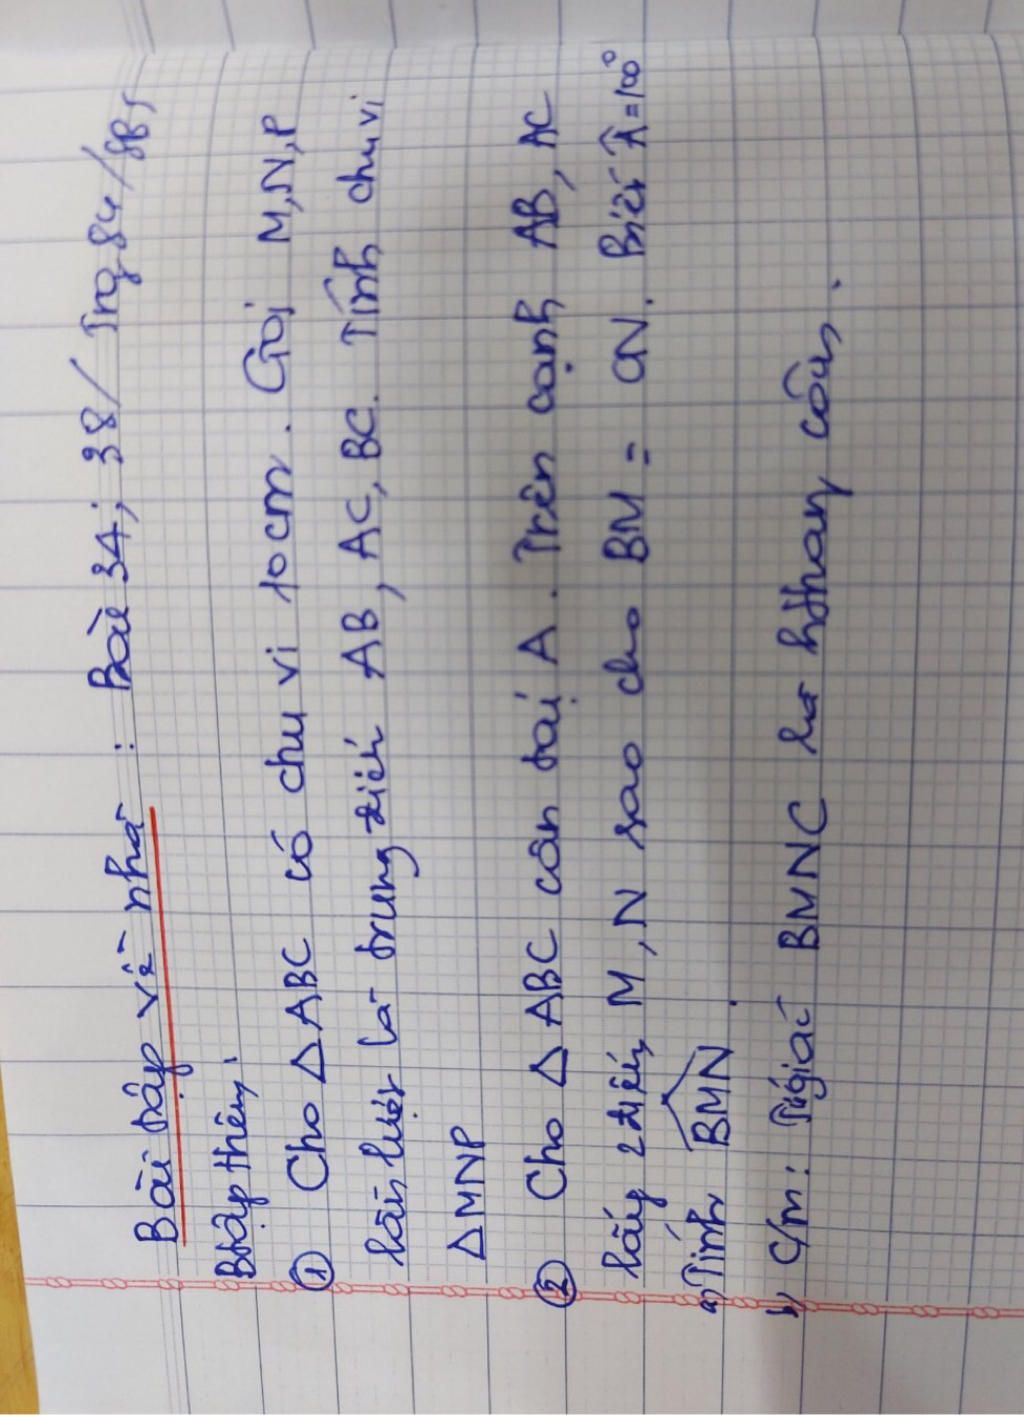 Bài tập về nhà : Bài 34; 38/ Trg 84/ SBT
B tập thêm.
① Cho Δ ABC có chu vi 10cm. Gọi M,N,P
lần lượt là trung điểm AB, AC, BC. Tính chu vi
ΔMNP
② Cho Δ ABC cân tại A. Trên cạnh AB, AC
lấy 2 điểm M, N sao cho BM = CN. Biết Â=100°
a) Tính BMN.
b) C/m: Tứ giác BMNC là hthang cân.